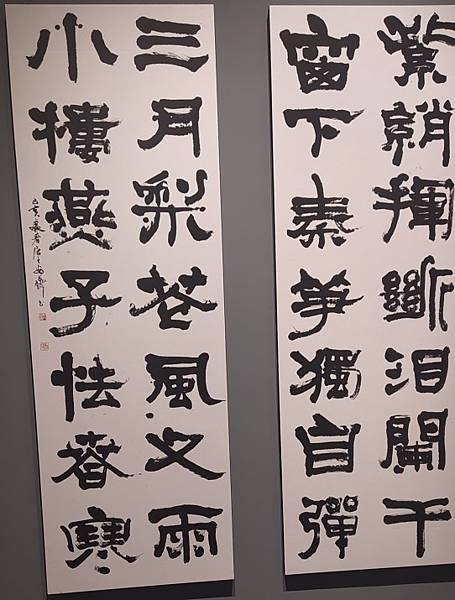 紫綃揮斷泪闌干
窗下秦箏獨自彈
三月梨花風又雨
小樓燕子怯春寒